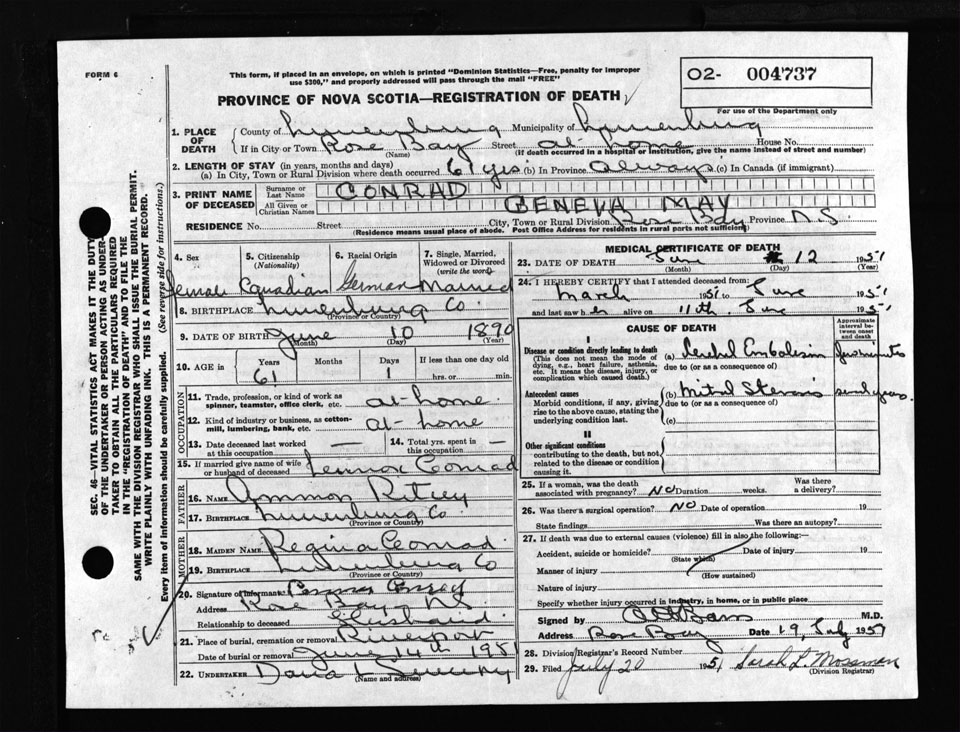 FORM 6
This form, if placed in an envelope, on which is printed "Dominion Statistics—Free, penalty for improper
use $300," and properly addressed will pass through the mail "FREE"
02- 004737
For use of the Department only
PROVINCE OF NOVA SCOTIA—REGISTRATION OF DEATH
SEC. 46—VITAL STATISTICS ACT MAKES IT THE DUTY
OF THE UNDERTAKER OR PERSON ACTING AS UNDER-
TAKER TO OBTAIN ALL THE PARTICULARS REQUIRED
IN THE "REGISTRATION OF DEATH" AND TO FILE THE
SAME WITH THE DIVISION REGISTRAR WHO SHALL ISSUE THE BURIAL PERMIT.
WRITE PLAINLY WITH UNFADING INK. THIS IS A PERMANENT RECORD.
Every item of information should be carefully supplied. (See reverse side for instructions.)
1. PLACE OF DEATH County of Lunenburg Municipality of Lunenburg
If in City or Town Rose Bay Street at home House No.
(Name) (If death occurred in a hospital or institution, give the name instead of street and number)
2. LENGTH OF STAY (in years, months and days)
(a) In City, Town or Rural Division where death occurred 61 yrs (b) In Province Always (c) In Canada (if immigrant)
3. PRINT NAME OF DECEASED Surname or Last Name CONRAD
All Given or Christian Names GENEVA MAY
RESIDENCE No. Street City, Town or Rural Division Rose Bay Province N.S.
(Residence means usual place of abode. Post Office Address for residents in rural parts not sufficient)
4. Sex 5. Citizenship (Nationality) 6. Racial Origin 7. Single, Married, Widowed or Divorced (write the word)
Female Canadian German Married
8. BIRTHPLACE Lunenburg Co.
(Province or Country)
9. DATE OF BIRTH June 10 1890
(Month) (Day) (Year)
10. AGE in Years Months Days If less than one day old
61 1 hrs. or min.
OCCUPATION
11. Trade, profession, or kind of work as spinner, teamster, office clerk, etc. at home
12. Kind of industry or business, as cotton-mill, lumbering, bank, etc. at home
13. Date deceased last worked at this occupation — 14. Total yrs. spent in this occupation —
15. If married give name of wife or husband of deceased Lennox Conrad
FATHER
16. NAME Ammon Ritcey
17. BIRTHPLACE Lunenburg Co
(Province or Country)
MOTHER
18. MAIDEN NAME Regina Conrad
19. BIRTHPLACE Lunenburg Co
(Province or Country)
20. Signature of informant
Address Rose Bay NS
Relationship to deceased Husband
21. Place of burial, cremation or removal Riverport
Date of burial or removal June 14th 1951
22. UNDERTAKER
(Name and address)
MEDICAL CERTIFICATE OF DEATH
23. DATE OF DEATH June 12 1951
(Month) (Day) (Year)
24. I HEREBY CERTIFY that I attended deceased from:
March 1951 to June 1951
and last saw her alive on 11th June 1951
CAUSE OF DEATH
Approximate interval between onset and death
I
Disease or condition directly leading to death (a) Cerebral Embolism few minutes
(This does not mean the mode of dying, e.g., heart failure, asthenia, etc. It means the disease, injury, or complication which caused death.)
due to (or as a consequence of)
Antecedent causes (b) Mitral Stenosis several years
Morbid conditions, if any, giving rise to the above cause, stating the underlying condition last.
due to (or as a consequence of)
(c)
II
Other significant conditions
contributing to the death, but not related to the disease or condition causing it.
25. If a woman, was the death associated with pregnancy? NO Duration weeks. Was there a delivery?
26. Was there a surgical operation? NO Date of operation 19
State findings Was there an autopsy?
27. If death was due to external causes (violence) fill in also the following:—
Accident, suicide or homicide? Date of injury 19
(State which)
Manner of injury
(How sustained)
Nature of injury
Specify whether injury occurred in industry, in home, or in public place
Signed by M.D.
Address Rose Bay Date 19 July 1951
28. Division Registrar's Record Number
29. Filed July 20 1951 Sarah L. Mossman
(Division Registrar)